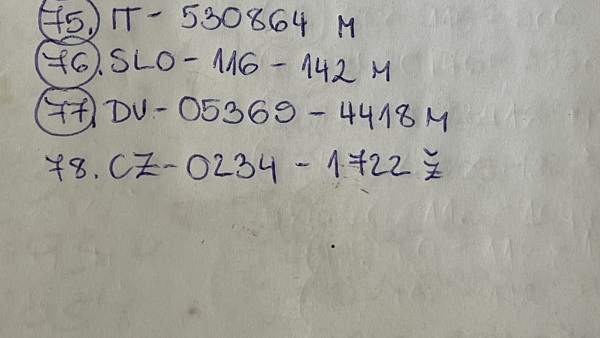 75. IT - 530864 M
76. SLO - 116 - 142 M
77. DV - 05369 - 4418 M
78. CZ - 0234 - 1722 Ž